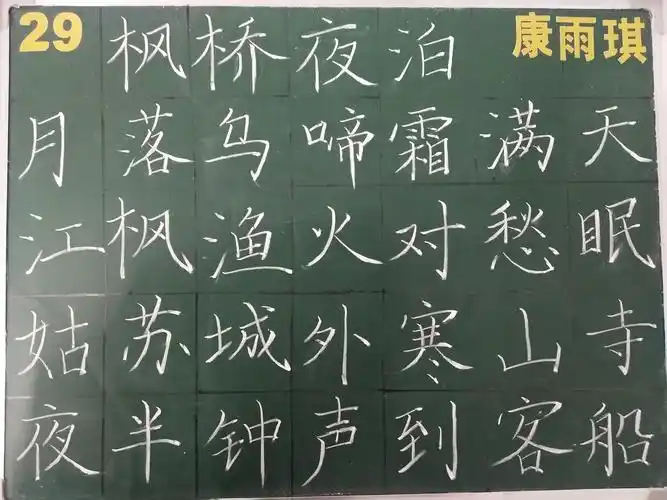 29 枫桥夜泊 康雨琪
月落乌啼霜满天
江枫渔火对愁眠
姑苏城外寒山寺
夜半钟声到客船